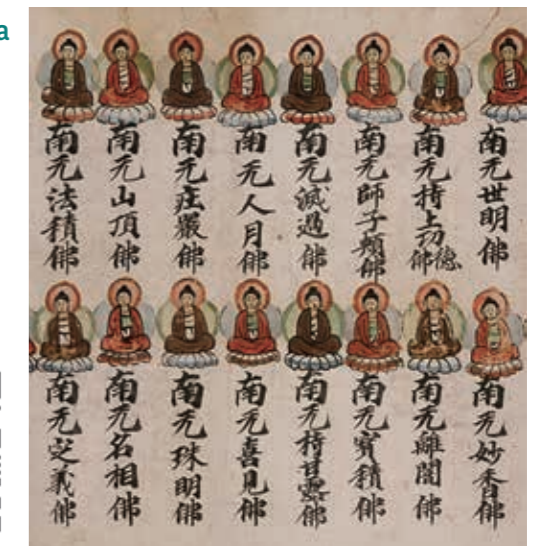 a
南无世明佛
南无持上功德佛
南无師子頰佛
南无滅過佛
南无人月佛
南无庄嚴佛
南无山頂佛
南无法積佛
南无妙香佛
南无離闇佛
南无寶積佛
南无持甘露佛
南无喜見佛
南无珠明佛
南无名相佛
南无定義佛